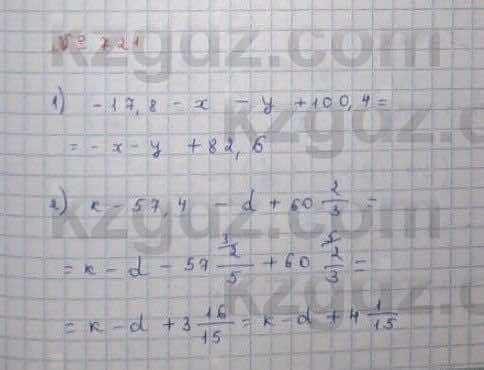 № 721
kzgdz.com
1) -17,8 - x - y + 100,4 =
= -x - y + 82,6
kzgdz.com
2) к - 57,4 - d + 60 2/3 =
= к - d - 57 2/5 + 60 2/3 =
= к - d + 3 16/15 = к - d + 4 1/15